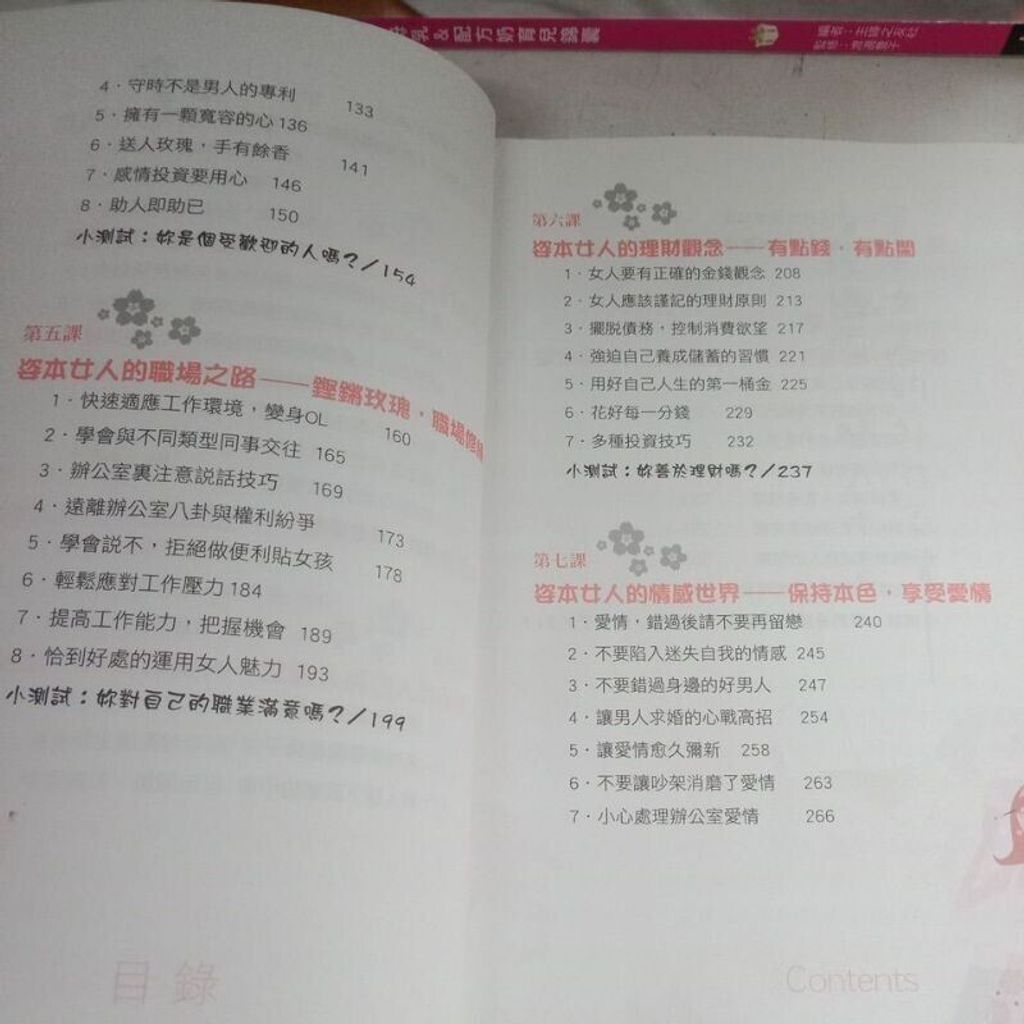 & 配方奶育兒錦囊
4．守時不是男人的專利 133
5．擁有一顆寬容的心 136
6．送人玫瑰，手有餘香 141
7．感情投資要用心 146
8．助人即助己 150
小測試：妳是個受歡迎的人嗎？/154
第五課
姿本女人的職場之路——鏗鏘玫瑰，職場修
1．快速適應工作環境，變身OL 160
2．學會與不同類型同事交往 165
3．辦公室裏注意說話技巧 169
4．遠離辦公室八卦與權利紛爭 173
5．學會說不，拒絕做便利貼女孩 178
6．輕鬆應對工作壓力 184
7．提高工作能力，把握機會 189
8．恰到好處的運用女人魅力 193
小測試：妳對自己的職業滿意嗎？/199
目錄
第六課
姿本女人的理財觀念——有點錢．有點閒
1．女人要有正確的金錢觀念 208
2．女人應該謹記的理財原則 213
3．擺脫債務，控制消費欲望 217
4．強迫自己養成儲蓄的習慣 221
5．用好自己人生的第一桶金 225
6．花好每一分錢 229
7．多種投資技巧 232
小測試：妳善於理財嗎？/237
第七課
姿本女人的情感世界——保持本色，享受愛情
1．愛情，錯過後請不要再留戀 240
2．不要陷入迷失自我的情感 245
3．不要錯過身邊的好男人 247
4．讓男人求婚的心戰高招 254
5．讓愛情愈久彌新 258
6．不要讓吵架消磨了愛情 263
7．小心處理辦公室愛情 266
Contents